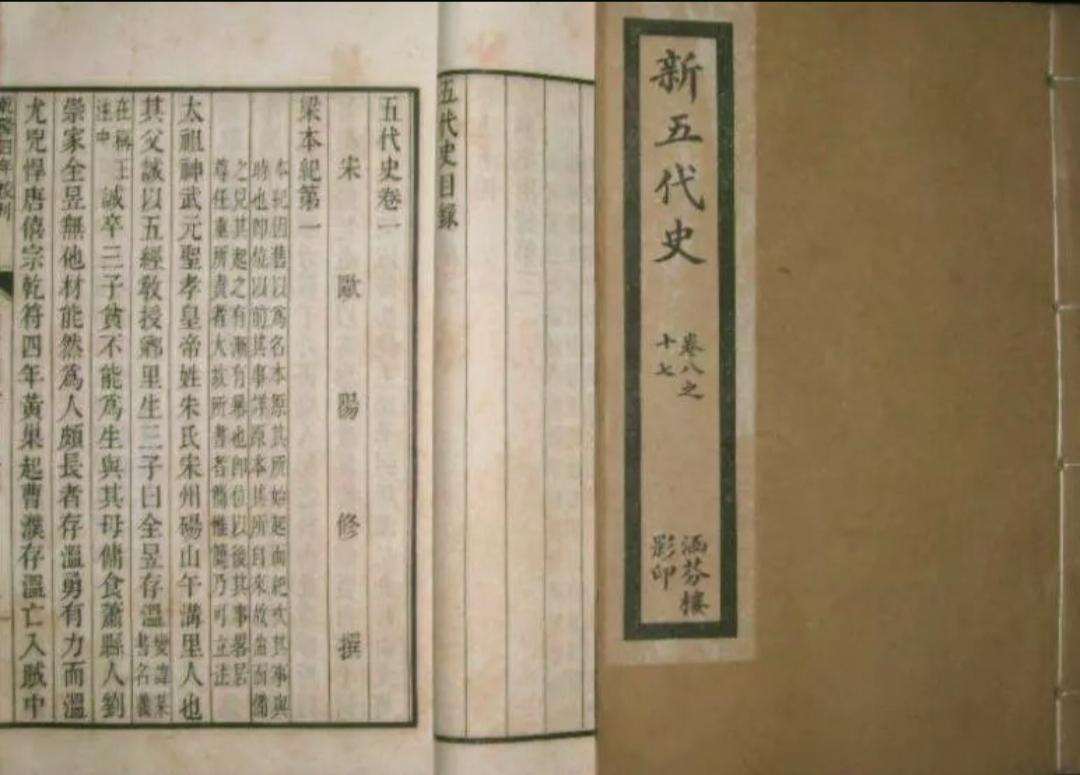 新五代史
卷八之
十七
涵芬樓
影印
五代史目錄
五代史卷一
宋歐陽修撰
梁本紀第一
本紀因舊以爲名本原其所始起而紀次其事與
時也即位以前其事詳原本其所自來故曲而備
之見其起之有漸有暴也即位以後其事畧居
尊任重所責者大故所書者簡惟簡乃可立法
太祖神武元聖孝皇帝姓朱氏宋州碭山午溝里人也
其父誠以五經教授鄉里生三子曰全昱存溫變諱某書名義
在稱王注中誠卒三子貧不能爲生與其母傭食蕭縣人劉
崇家全昱無他材能然爲人頗長者存溫勇有力而溫
尤兇悍唐僖宗乾符四年黃巢起曹濮存溫亡入賊中
乾隆四年校刊